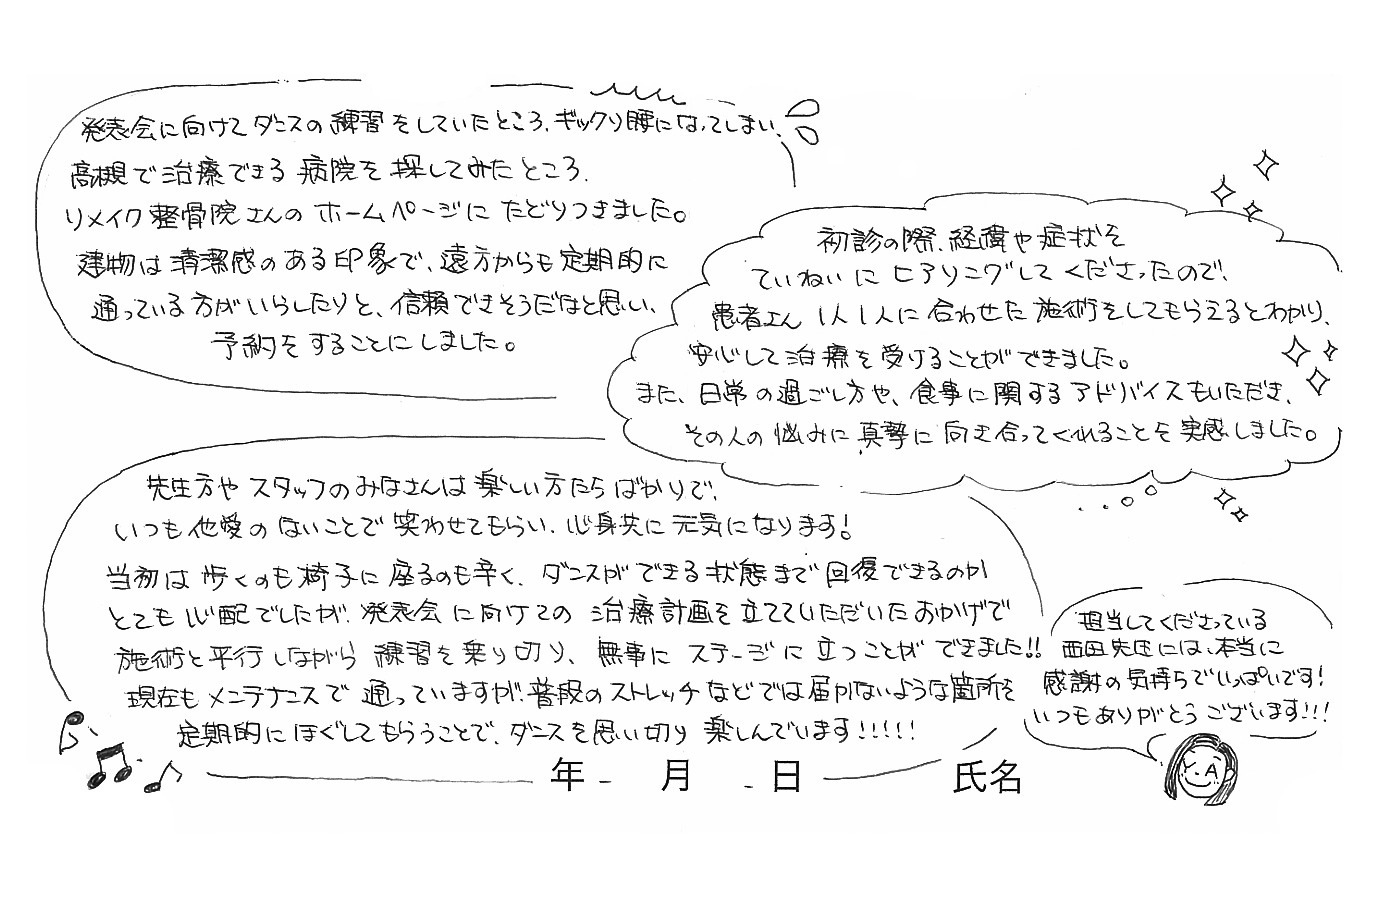 発表会に向けてダンスの練習をしていたところ、ギックリ腰になってしまい、
高槻で治療できる病院を探してみたところ、
リメイク整骨院さんのホームページにたどりつきました。
建物は清潔感のある印象で、遠方からも定期的に
通っている方がいらしたりと、信頼できそうだなと思い、
予約をすることにしました。
初診の際、経緯や症状を
ていねいにヒアリングしてくださったので、
患者さん1人1人に合わせた施術をしてもらえるとわかり、
安心して治療を受けることができました。
また、日常の過ごし方や、食事に関するアドバイスもいただき、
その人の悩みに真摯に向き合ってくれることを実感しました。
先生方やスタッフのみなさんは楽しい方たちばかりで、
いつも他愛のないことで笑わせてもらい、心身共に元気になります!
当初は歩くのも椅子に座るのも辛く、ダンスができる状態まで回復できるのか
とても心配でしたが、発表会に向けての治療計画を立てていただいたおかげで
施術と平行しながら練習を乗り切り、無事にステージに立つことができました!!
現在もメンテナンスで通っていますが、普段のストレッチなどでは届かないような箇所を
定期的にほぐしてもらうことで、ダンスを思い切り楽しんでいます!!!!!
担当してくださっている
西田先生には、本当に
感謝の気持ちでいっぱいです!
いつもありがとうございます!!!
年 月 日 氏名